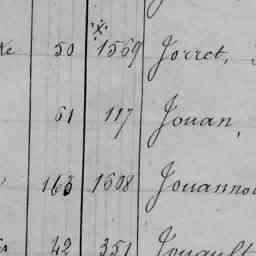 50 1569 Jorret,
61 117 Jouan,
163 1608 Jouanno
42 351 Jouault